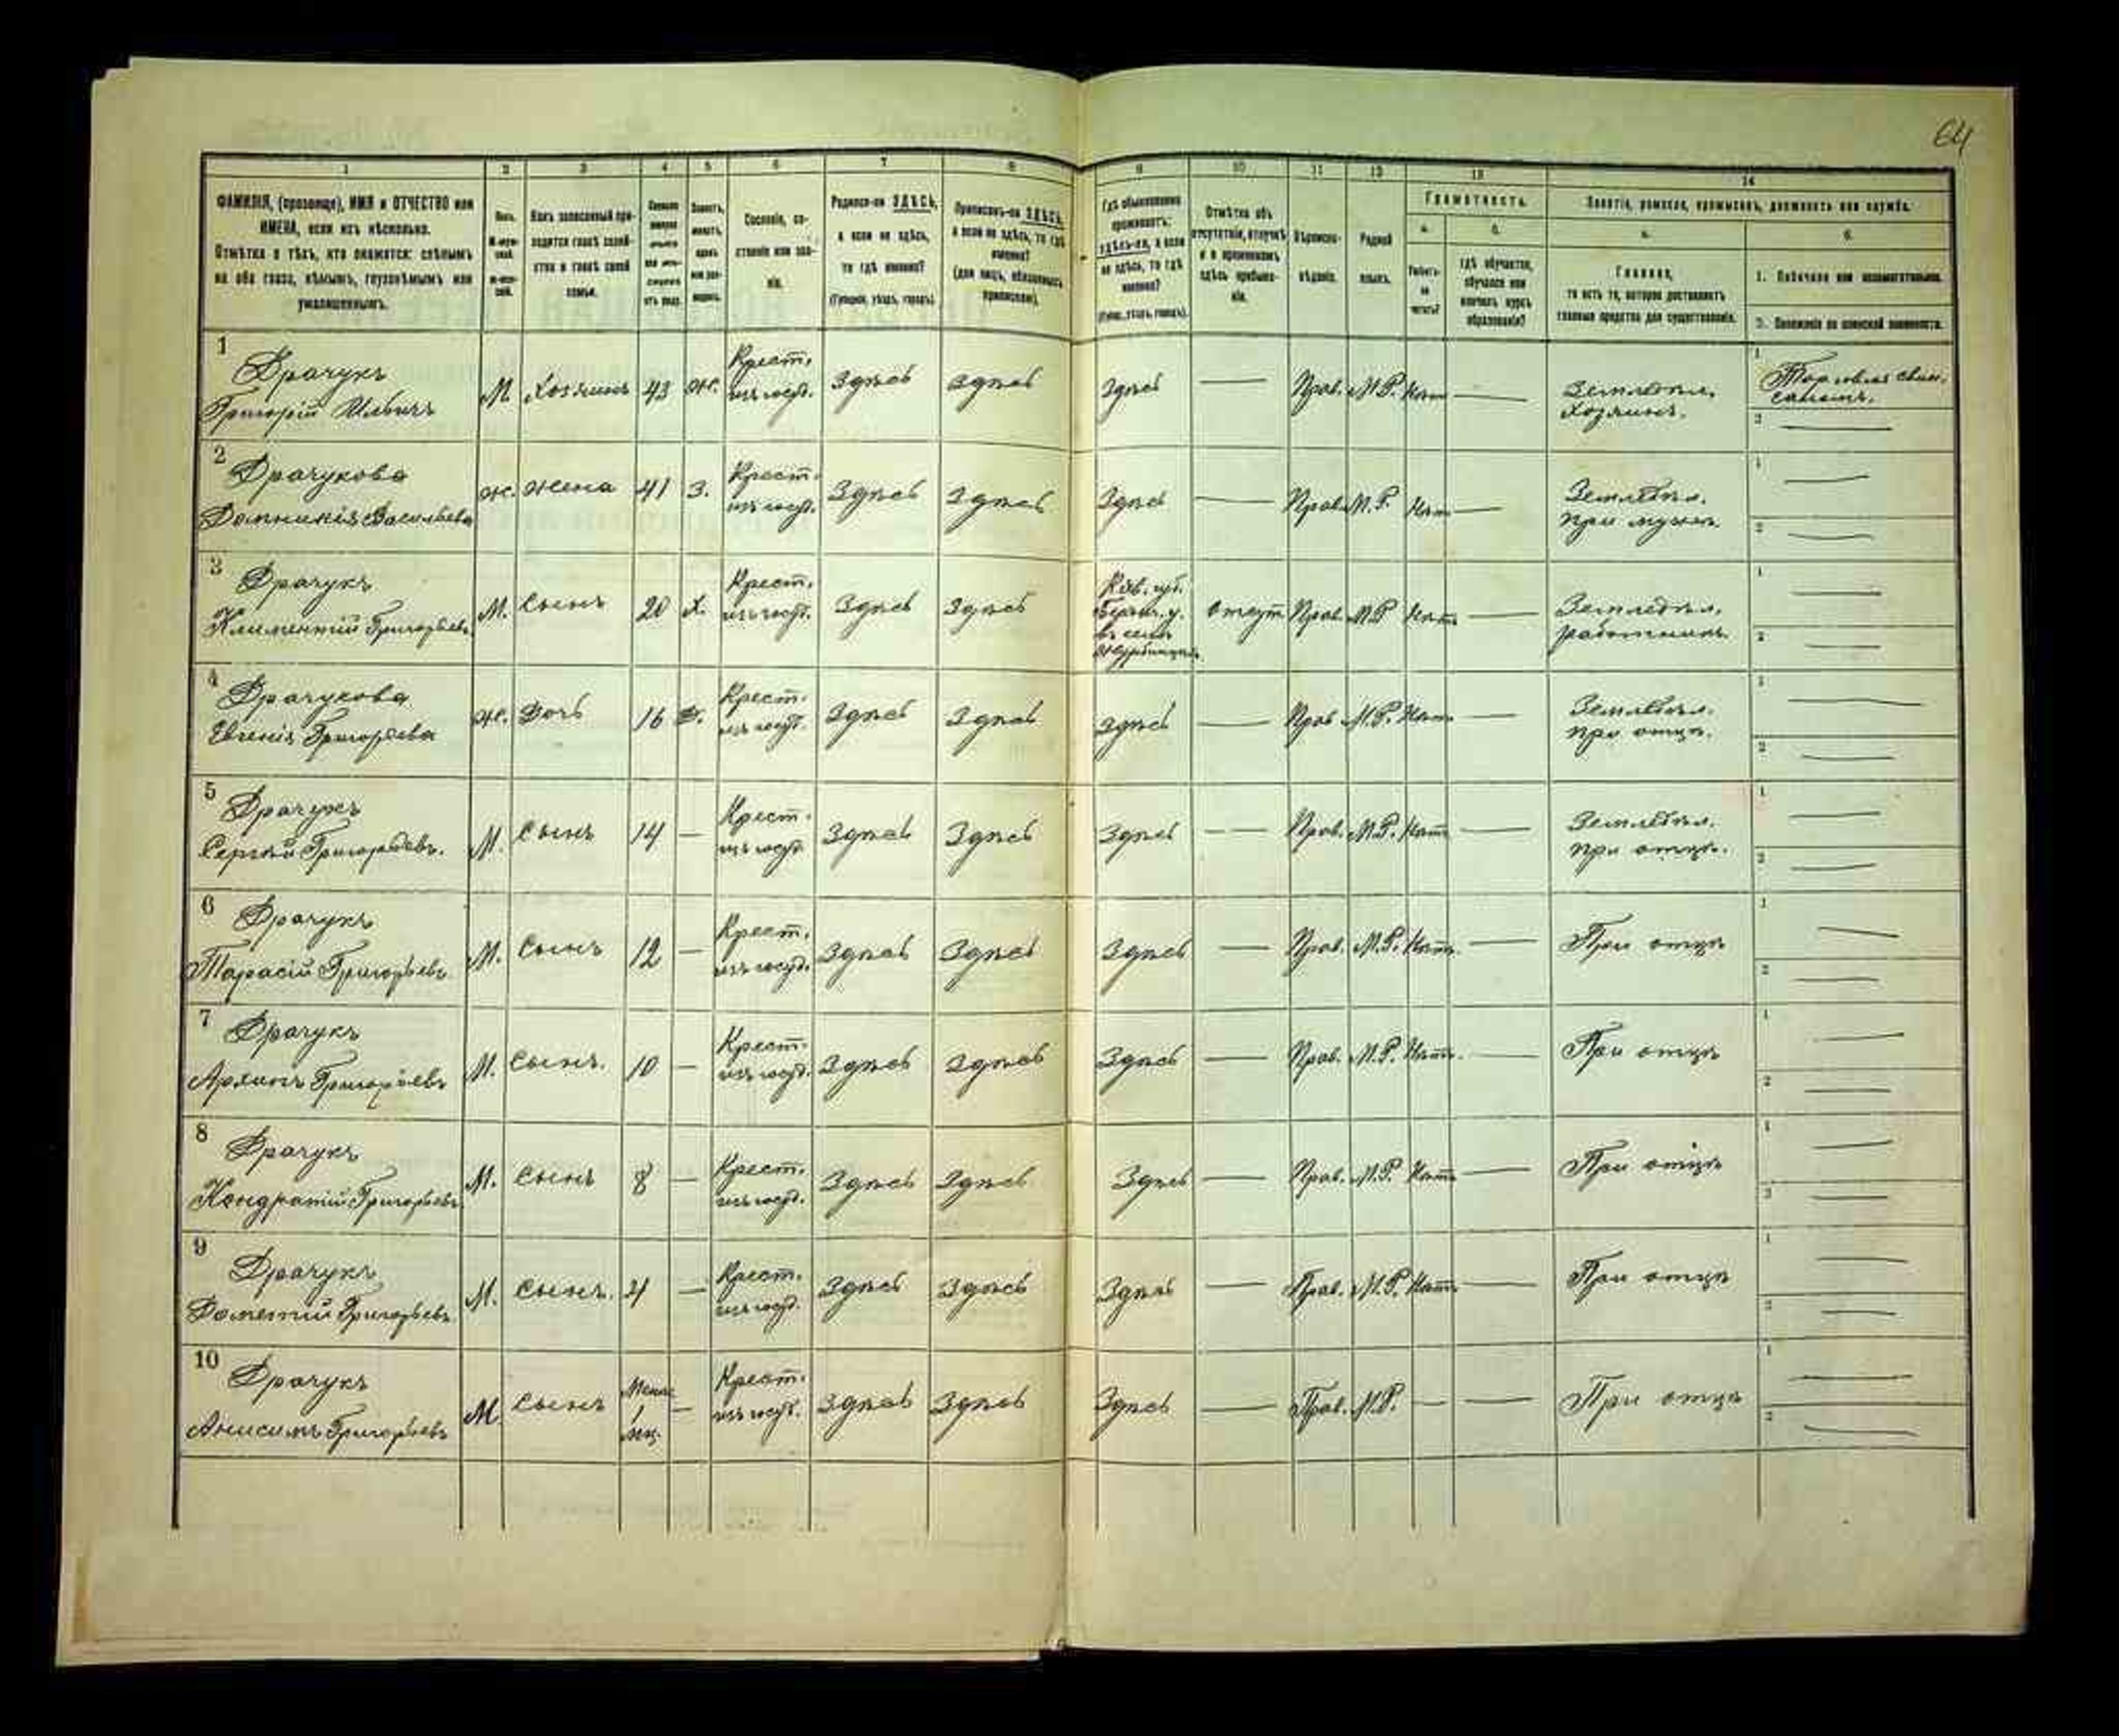 64
1 2 3 4 5 6 7 8 9 10 11 12 13 14
ФАМИЛІЯ, (прозвище), ИМЯ и ОТЧЕСТВО или
ИМЕНА, если ихъ нѣсколько.
Отмѣтка о тѣхъ, кто окажется: слѣпымъ
на оба глаза, нѣмымъ, глухонѣмымъ или
умалишеннымъ.
Полъ.
Какъ записанный при-
ходится главѣ хозяй-
ства и главѣ своей
семьи.
Сословіе, со-
стояніе или зва-
ніе.
Родился-ли ЗДѢСЬ,
а если не здѣсь,
то гдѣ именно?
(Губернія, уѣздъ, городъ).
Приписанъ-ли ЗДѢСЬ,
а если не здѣсь, то гдѣ
именно?
(для лицъ, обязанныхъ
припискою).
Гдѣ обыкновенно
проживаетъ:
здѣсь-ли, а если
не здѣсь, то гдѣ
именно?
(Губер., уѣздъ, городъ).
Отмѣтка объ
отсутствіи, отлучкѣ
и о временномъ
здѣсь пребыва-
ніи.
Вѣроиспо-
вѣданіе.
Родной
языкъ.
Грамотность.
а. б.
Умѣетъ-
ли
читать?
гдѣ обучается,
обучался или
кончилъ курсъ
образованія?
Занятіе, ремесло, промыселъ, должность или служба.
а. б.
Главное,
то есть то, которое доставляетъ
главныя средства для существованія.
1. Побочное или вспомогательное.
2. Положеніе по воинской повинности.
1 Драчукъ
Григорій Ильичъ
М. Хозяинъ 43 ж. Крест. изъ госуд. Здѣсь Здѣсь Здѣсь — Прав. М.Р. Нѣтъ — Земледѣл. Хозяинъ. 1 Торговля
2 —
2 Драчукова
Домникія Васильева
ж. жена 41 З. Крест. изъ госуд. Здѣсь Здѣсь Здѣсь — Прав. М.Р. Нѣтъ — Земледѣл. при мужѣ. 1 —
2 —
3 Драчукъ
Климентій Григорьевъ
М. Сынъ 20 х. Крест. изъ госуд. Здѣсь Здѣсь Кіев. губ. у. въ селѣ отсут Прав. М.Р. Нѣтъ — Земледѣл. работникъ 1 —
2 —
4 Драчукова
Евгенія Григорьева
ж. Дочь 16 Крест. изъ госуд. Здѣсь Здѣсь Здѣсь — Прав М.Р. Нѣтъ — Земледѣл. при отцѣ. 1 —
2 —
5 Драчукъ
Сергѣй Григорьевъ.
М. Сынъ 14 — Крест. изъ госуд. Здѣсь Здѣсь Здѣсь — Прав. М.Р. Нѣтъ — Земледѣл. при отцѣ. 1 —
2 —
6 Драчукъ
Тарасій Григорьевъ
М. Сынъ 12 — Крест. изъ госуд. Здѣсь Здѣсь Здѣсь — Прав. М.Р. Нѣтъ. — При отцѣ 1 —
2 —
7 Драчукъ
Григорьевъ
М. Сынъ. 10 — Крест. изъ госуд. Здѣсь Здѣсь Здѣсь — Прав. М.Р. Нѣтъ. — При отцѣ 1 —
2 —
8 Драчукъ
Кондратій Григорьевъ
М. Сынъ 8 — Крест. изъ госуд. Здѣсь Здѣсь Здѣсь — Прав. М.Р. Нѣтъ — При отцѣ 1 —
2 —
9 Драчукъ
Дометій Григорьевъ
М. Сынъ. 4 — Крест. изъ госуд. Здѣсь Здѣсь Здѣсь — Прав. М.Р. Нѣтъ — При отцѣ 1 —
2 —
10 Драчукъ
Анисимъ Григорьевъ
М Сынъ Менѣе 1 мѣц. — Крест. изъ госуд. Здѣсь Здѣсь Здѣсь — Прав. М.Р. — — При отцѣ 1 —
2 —